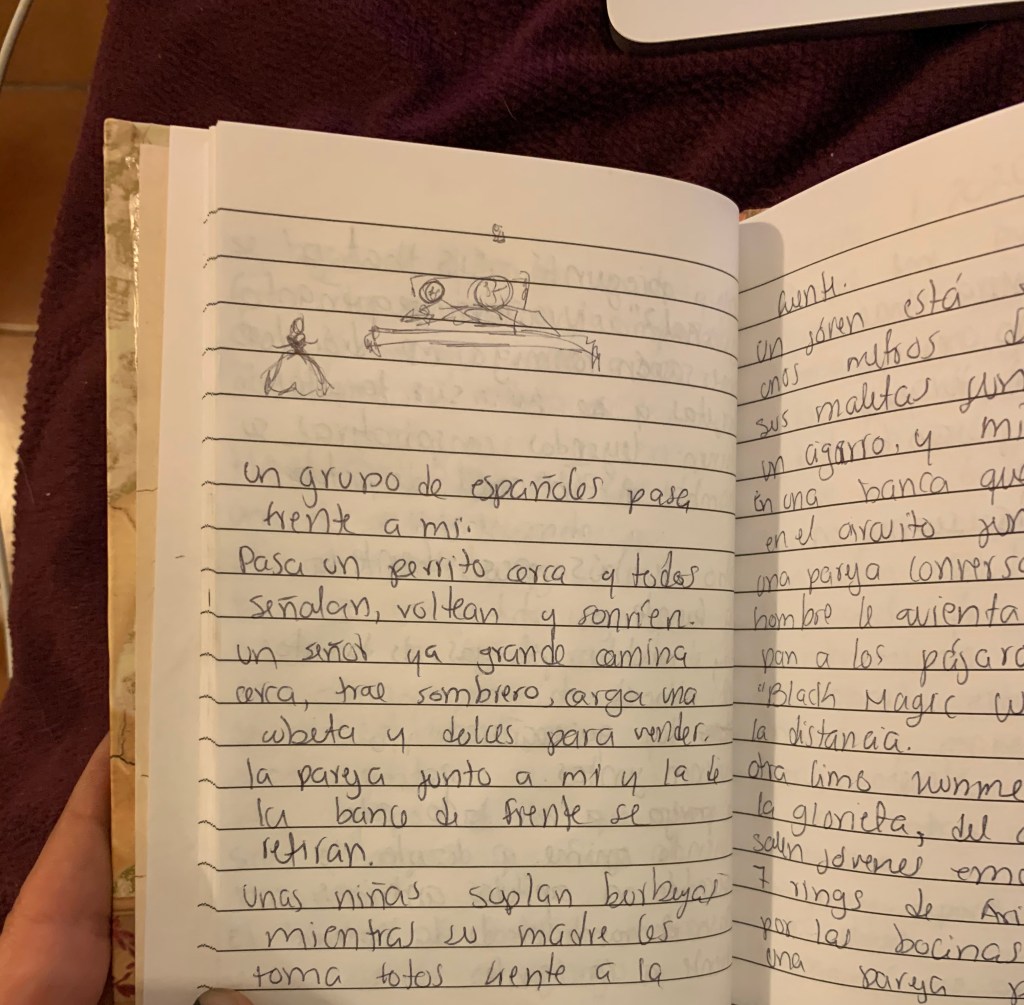 un grupo de españoles pasa
frente a mi.
Pasa un perrito cerca y todos
señalan, voltean y sonríen.
un señor ya grande camina
cerca, trae sombrero, carga una
cubeta y dulces para vender.
la pareja junto a mi y la de
la banca de frente se
retiran.
unas niñas soplan burbujas
mientras su madre les
toma fotos frente a la
un jóven está
unos metros
sus maletas jun
un cigarro, y mi
en una banca que
en el circuito jun
una pareja convers
hombre le avienta
pan a los pájaro
"Black Magic W
la distancia.
otra limo
la glorieta, del
salen jóvenes emo
7 rings de Ari
por las bocinas
una pareja